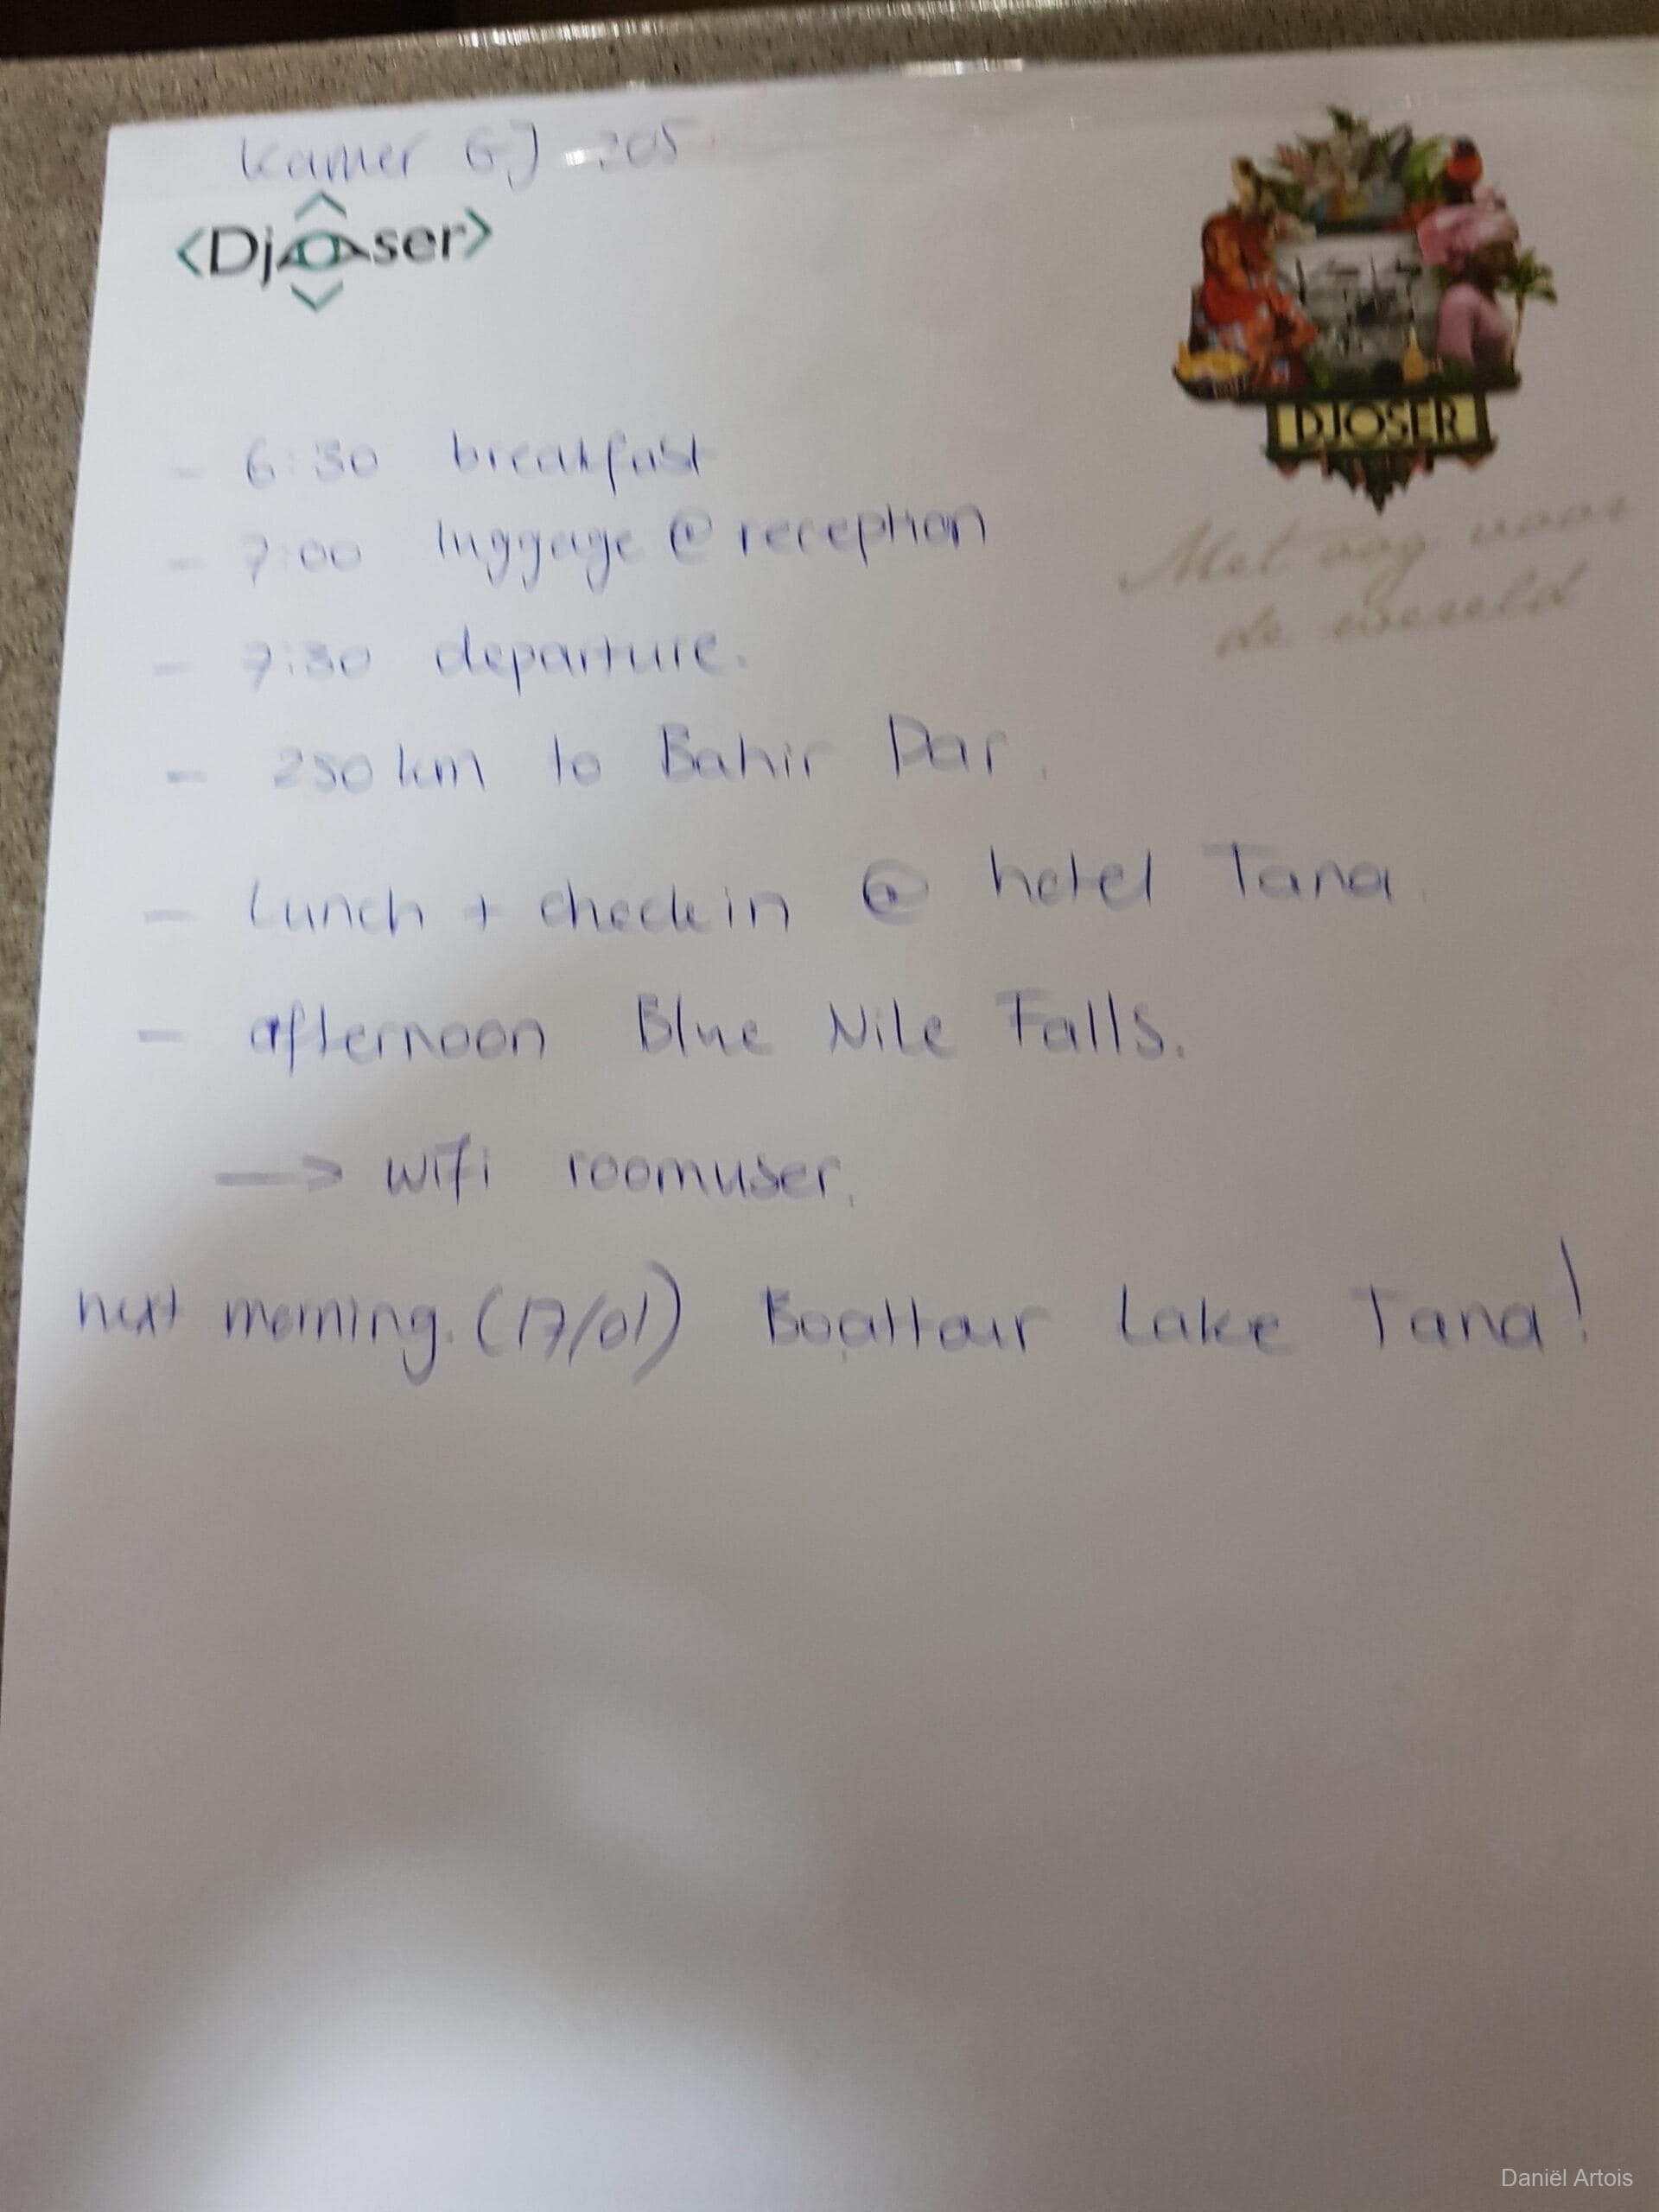 Kamer GJ 205
<Djoser>
DJOSER
Met oog voor
de wereld
- 6:30 breakfast
- 7:00 luggage @ reception
- 7:30 departure.
- 250 km to Bahir Dar.
- Lunch + check in @ hotel Tana
- afternoon Blue Nile Falls.
--> wifi roomuser.
next morning. (17/01) Boattour Lake Tana!
Daniël Artois